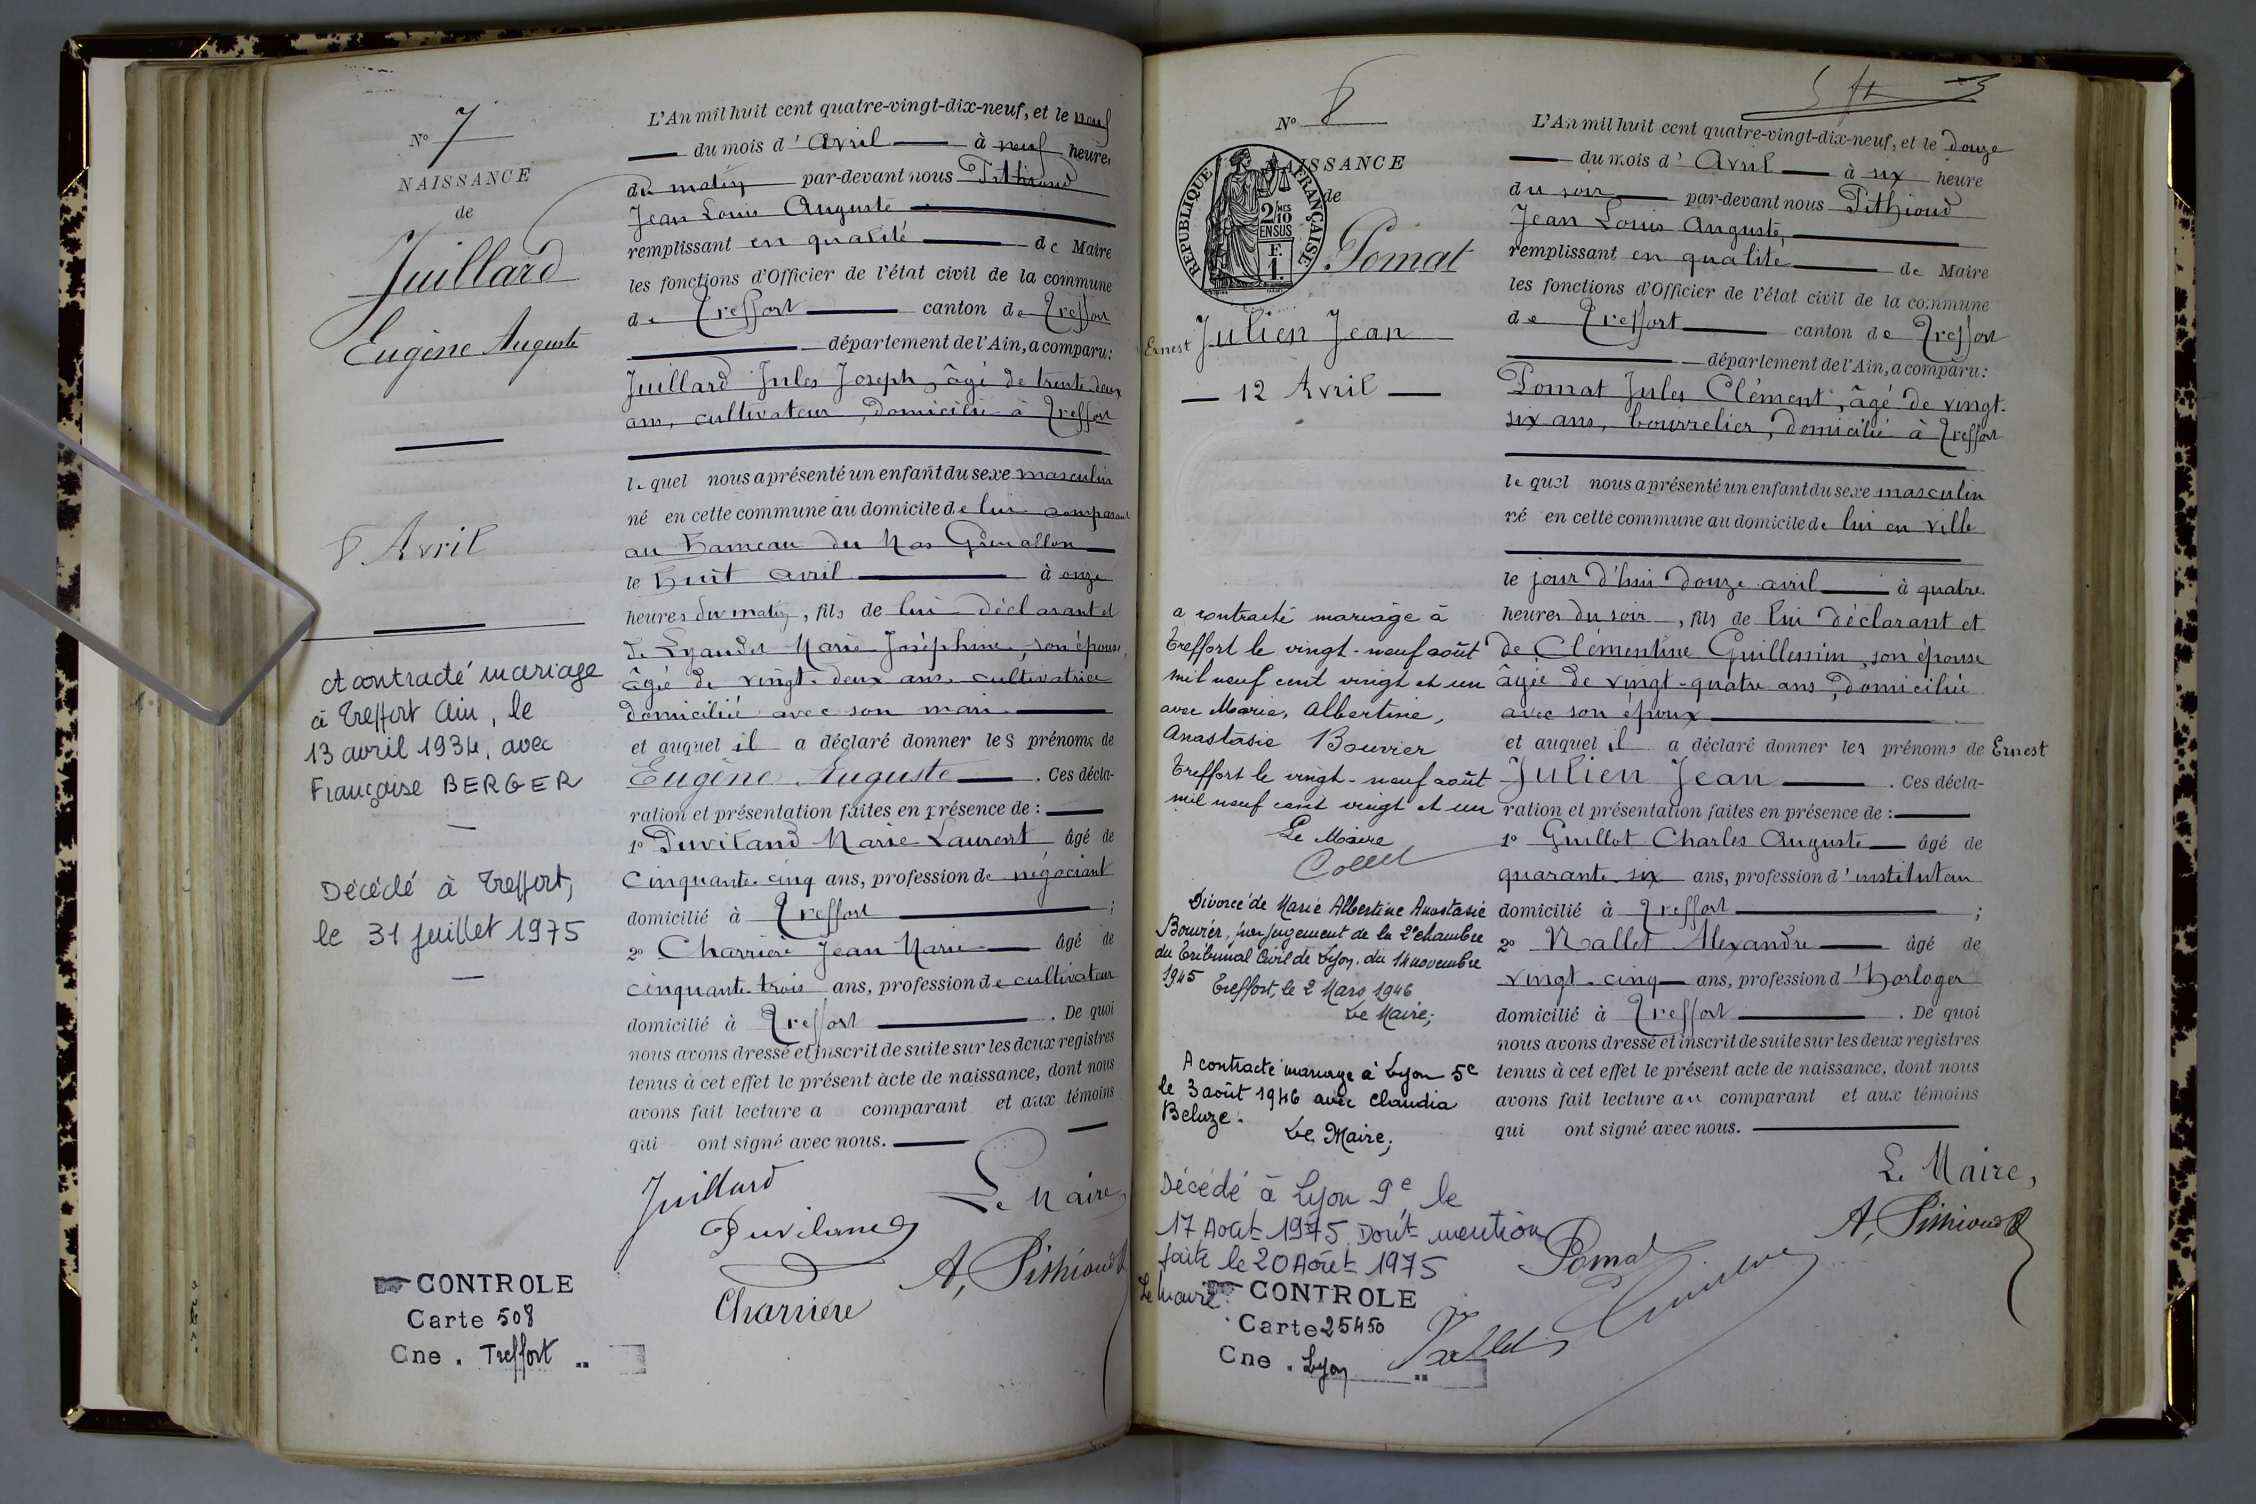 N° 7
NAISSANCE
de
Juillard
Eugène Auguste
8 Avril
A contracté mariage
à Treffort Ain, le
13 avril 1934, avec
Françoise BERGER
Décédé à Treffort,
le 31 juillet 1975
CONTROLE
Carte 508
Cne. Treffort
L'An mil huit cent quatre-vingt-dix-neuf, et le neuf
du mois d'Avril à neuf heures
du matin par-devant nous Pithioud
Jean Louis Auguste
remplissant en qualité de Maire
les fonctions d'Officier de l'état civil de la commune
de Treffort canton de Treffort
département de l'Ain, a comparu:
Juillard Jules Joseph, âgé de trente-deux
ans, cultivateur, domicilié à Treffort
lequel nous a présenté un enfant du sexe masculin
né en cette commune au domicile de lui comparant
au hameau du Mas Grenallon
le huit avril à onze
heures du matin, fils de lui déclarant et
de Lyaudet Marie Joséphine, son épouse,
âgée de vingt-deux ans, cultivatrice
domiciliée avec son mari
et auquel il a déclaré donner les prénoms de
Eugène Auguste. Ces décla-
ration et présentation faites en présence de:
1° Duviland Marie Laurent âgé de
cinquante-cinq ans, profession de négociant
domicilié à Treffort;
2° Charrière Jean Marie âgé de
cinquante-trois ans, profession de cultivateur
domicilié à Treffort. De quoi
nous avons dressé et inscrit de suite sur les deux registres
tenus à cet effet le présent acte de naissance, dont nous
avons fait lecture a comparant et aux témoins
qui ont signé avec nous.
Juillard Le Maire,
Duviland
A. Pithioud
Charriere
N° 8
NAISSANCE
de
REPUBLIQUE FRANÇAISE
2/10 MES
EN SUS
F.
1.
Pomat
Ernest Julien Jean
12 Avril
a contracté mariage à
Treffort le vingt-neuf août
mil neuf cent vingt et un
avec Marie, Albertine,
Anastasie Bouvier
Treffort le vingt-neuf août
mil neuf cent vingt et un
Le Maire
Collet
Divorcé de Marie Albertine Anastasie
Bouvier, par jugement de la 2e chambre
du Tribunal Civil de Lyon, du 14 novembre
1945 Treffort, le 2 Mars 1946
Le Maire;
A contracté mariage à Lyon 5e
le 3 août 1946 avec Claudia
Beluze.
Le Maire;
Décédé à Lyon 9e le
17 Août 1975. Dont mention
faite le 20 Août 1975
Le Maire
CONTROLE
Carte 25450
Cne. Lyon
L'An mil huit cent quatre-vingt-dix-neuf, et le douze
du mois d'Avril à six heure
du soir par-devant nous Pithioud
Jean Louis Auguste,
remplissant en qualité de Maire
les fonctions d'Officier de l'état civil de la commune
de Treffort canton de Treffort
département de l'Ain, a comparu:
Pomat Jules Clément, âgé de vingt-
six ans, bourrelier, domicilié à Treffort
lequel nous a présenté un enfant du sexe masculin
né en cette commune au domicile de lui en ville
le jour d'hui douze avril à quatre
heures du soir, fils de lui déclarant et
de Clémentine Guillemin, son épouse
âgée de vingt-quatre ans, domiciliée
avec son époux
et auquel il a déclaré donner les prénoms de Ernest
Julien Jean. Ces décla-
ration et présentation faites en présence de:
1° Guillot Charles Auguste âgé de
quarante-six ans, profession d'instituteur
domicilié à Treffort;
2° Nallet Alexandre âgé de
vingt-cinq ans, profession d'horloger
domicilié à Treffort. De quoi
nous avons dressé et inscrit de suite sur les deux registres
tenus à cet effet le présent acte de naissance, dont nous
avons fait lecture au comparant et aux témoins
qui ont signé avec nous.
Le Maire,
A. Pithioud
Pomat
Nallet